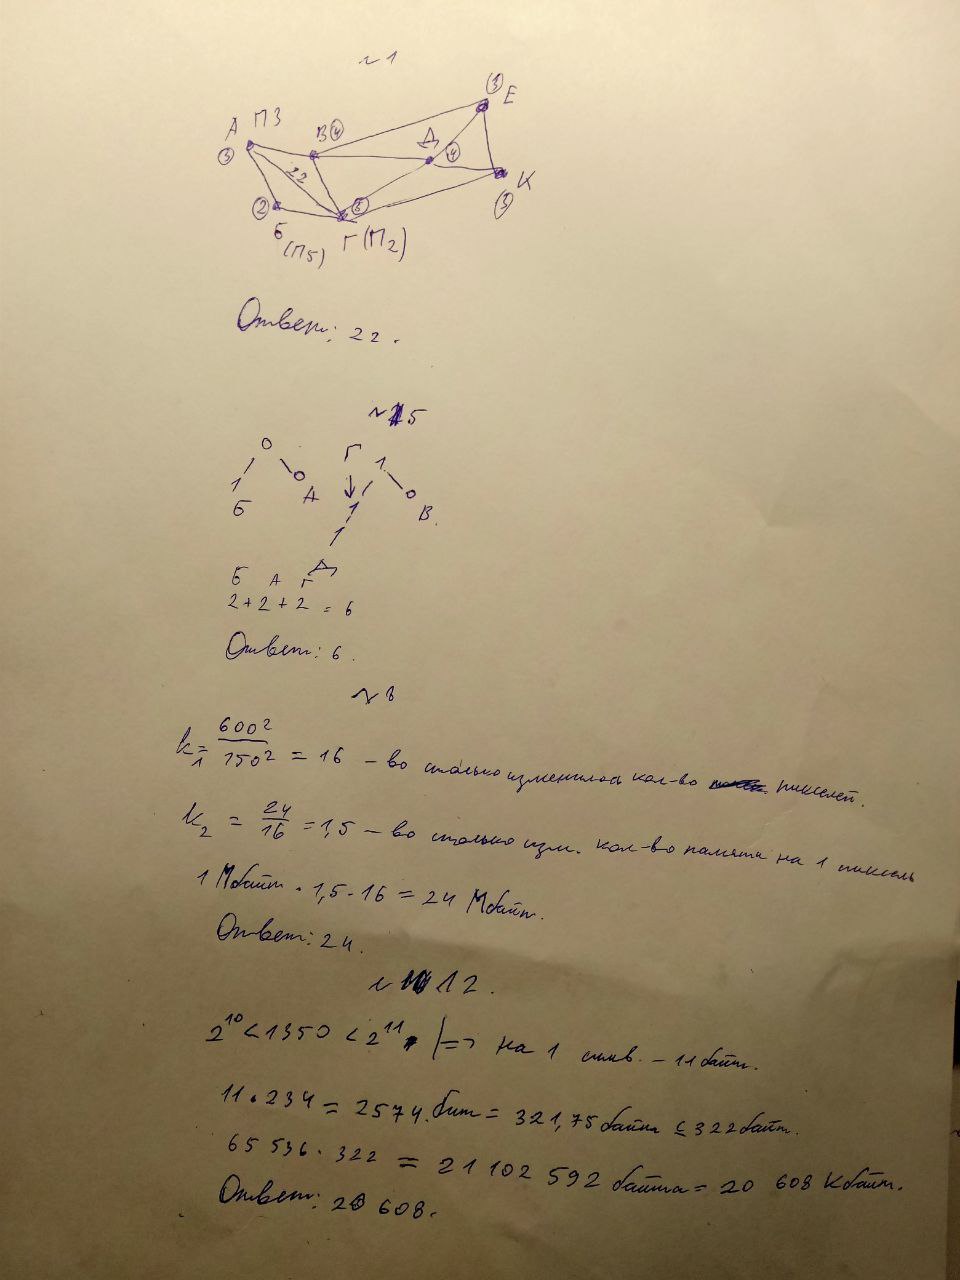 ~ 1
А П3
③
В ④
22
Д
④
③
Е
К
③
②
Б
(П5)
⑤
Г (П2)
Ответ: 22.
~ 5
0
1
Б
0
А
Г
1
↓
1
0
В.
1
Д
Б А Г
2 + 2 + 2 = 6
Ответ: 6.
k₁ = 600² / 150² = 16 – во столько изменилось кол-во пикселей.
k₂ = 24 / 16 = 1,5 – во столько изм. кол-во памяти на 1 пиксель
1 Мбайт · 1,5 · 16 = 24 Мбайт.
Ответ: 24.
~ 12.
2¹⁰ < 1350 < 2¹¹ |=> на 1 симв. – 11 байт.
11 · 234 = 2574 бит = 321,75 байт ≤ 322 байт.
65 536 · 322 = 21 102 592 байта = 20 608 Кбайт.
Ответ: 20 608.